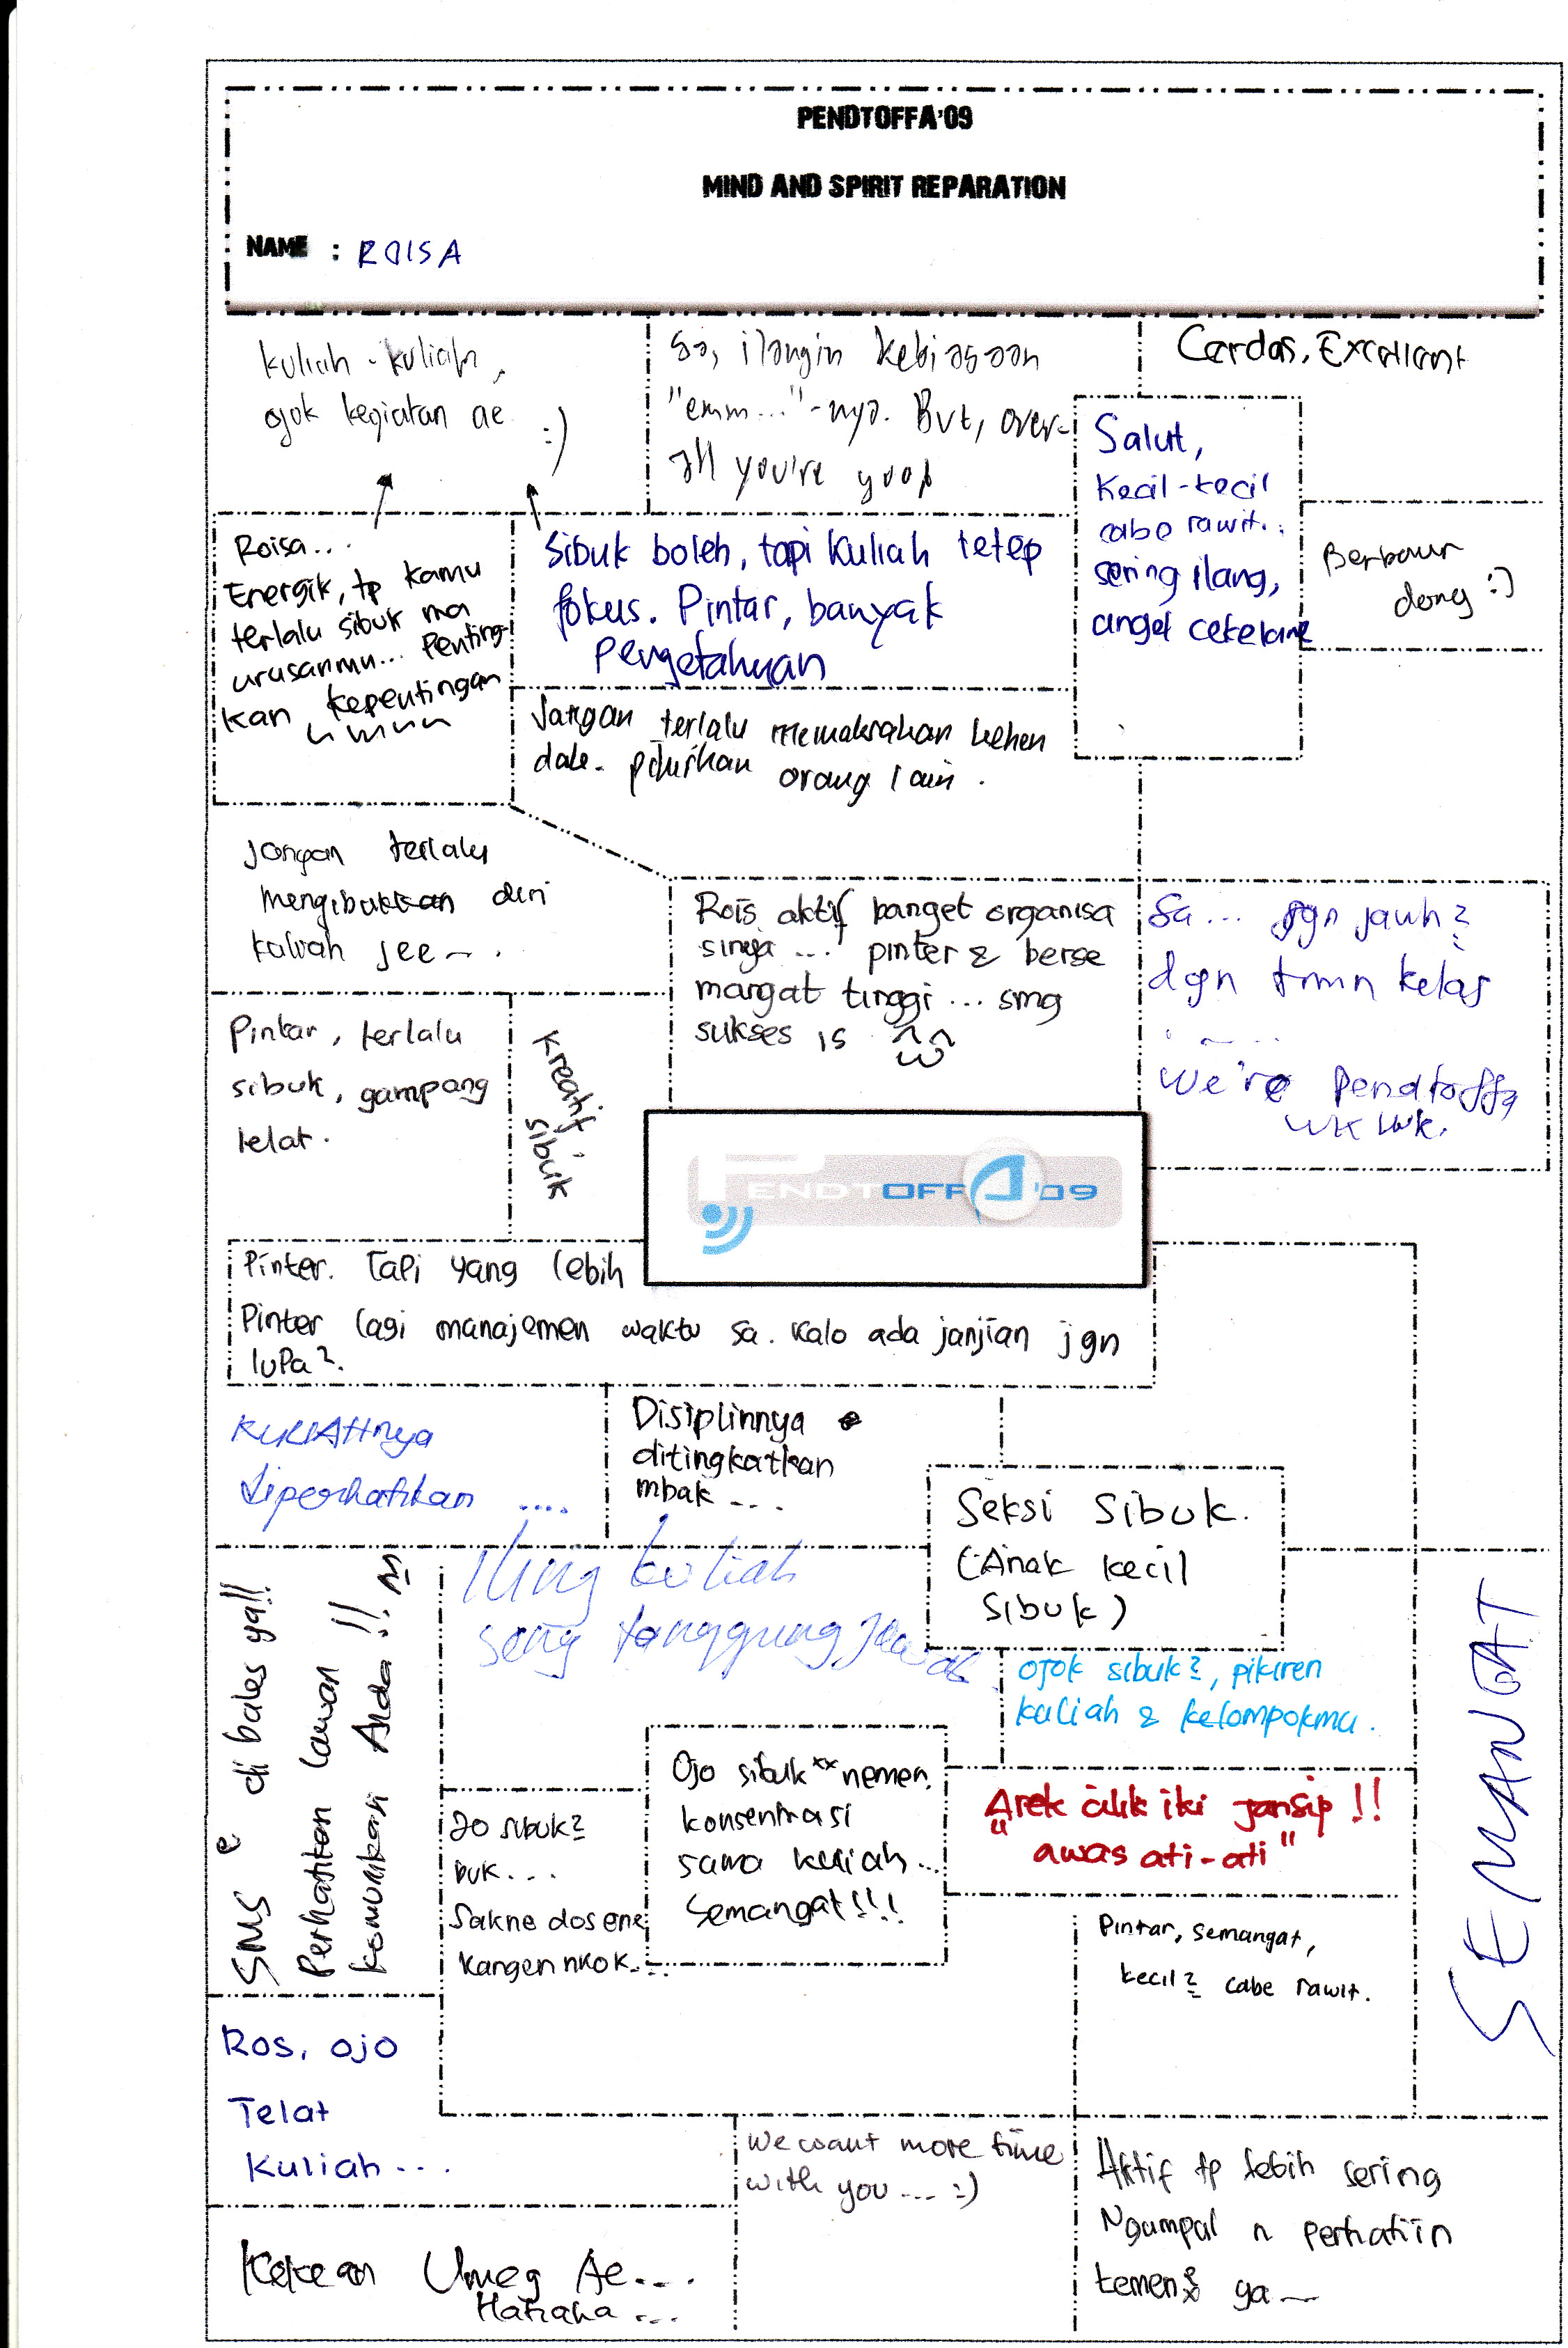 PENDTOFFA'09
MIND AND SPIRIT REPARATION
NAME : ROISA
kuliah - kuliah,
ojok kegiatan ae :)
Sa, ilangin kebiasaan
"emm..."-nya. But, over-
all you're good
Cerdas, Excellent
Salut,
Kecil-kecil
cabe rawit..
sering ilang,
angel cekelane
Berbaur
dong :)
Roisa...
Energik, tp kamu
terlalu sibuk ma
urusanmu... Penting-
kan kepentingan
umum
Sibuk boleh, tapi kuliah tetep
fokus. Pintar, banyak
pengetahuan
Jangan terlalu memaksakan kehen
dak. pikirkan orang lain.
Jangan terlalu
mengibukkan diri
kuliah jee~.
Rois aktif banget organisa
sinya... pinter & berse
mangat tinggi... smg
sukses is ^w^
Sa... jgn jauh2
dgn tmn kelas
.....
We're Pendtoffa
wk wk.
Pintar, terlalu
sibuk, gampang
telat.
Kreatif,
sibuk
PENDTOFFA'09
Pinter. Tapi yang lebih
Pinter lagi manajemen waktu sa. Kalo ada janjian jgn
lupa2.
KULIAHnya
diperhatikan ....
Disiplinnya
ditingkatkan
mbak ...
Seksi Sibuk.
(Anak kecil
sibuk)
SMS e di bales ya!!
Perhatikan lawan
komunikasi Anda!!.
Iling kuliah
seng tanggung jawab
ojok sibuk2, pikiren
kuliah & kelompokmu.
SEMANGAT
Ojo sibuk** nemen,
konsentrasi
sama kuliah...
Semangat!!!
"Arek cilik iki jansip!!
awas ati-ati"
Jo sibuk2
buk...
Sakne dosene
kangen nkok...
Pintar, semangat,
kecil2 cabe rawit.
Ros, ojo
Telat
Kuliah...
We want more time
with you... :)
Aktif tp lebih sering
Ngumpul n perhatiin
temen2 ya~
Kekean Umeg Ae...
Hahaha...